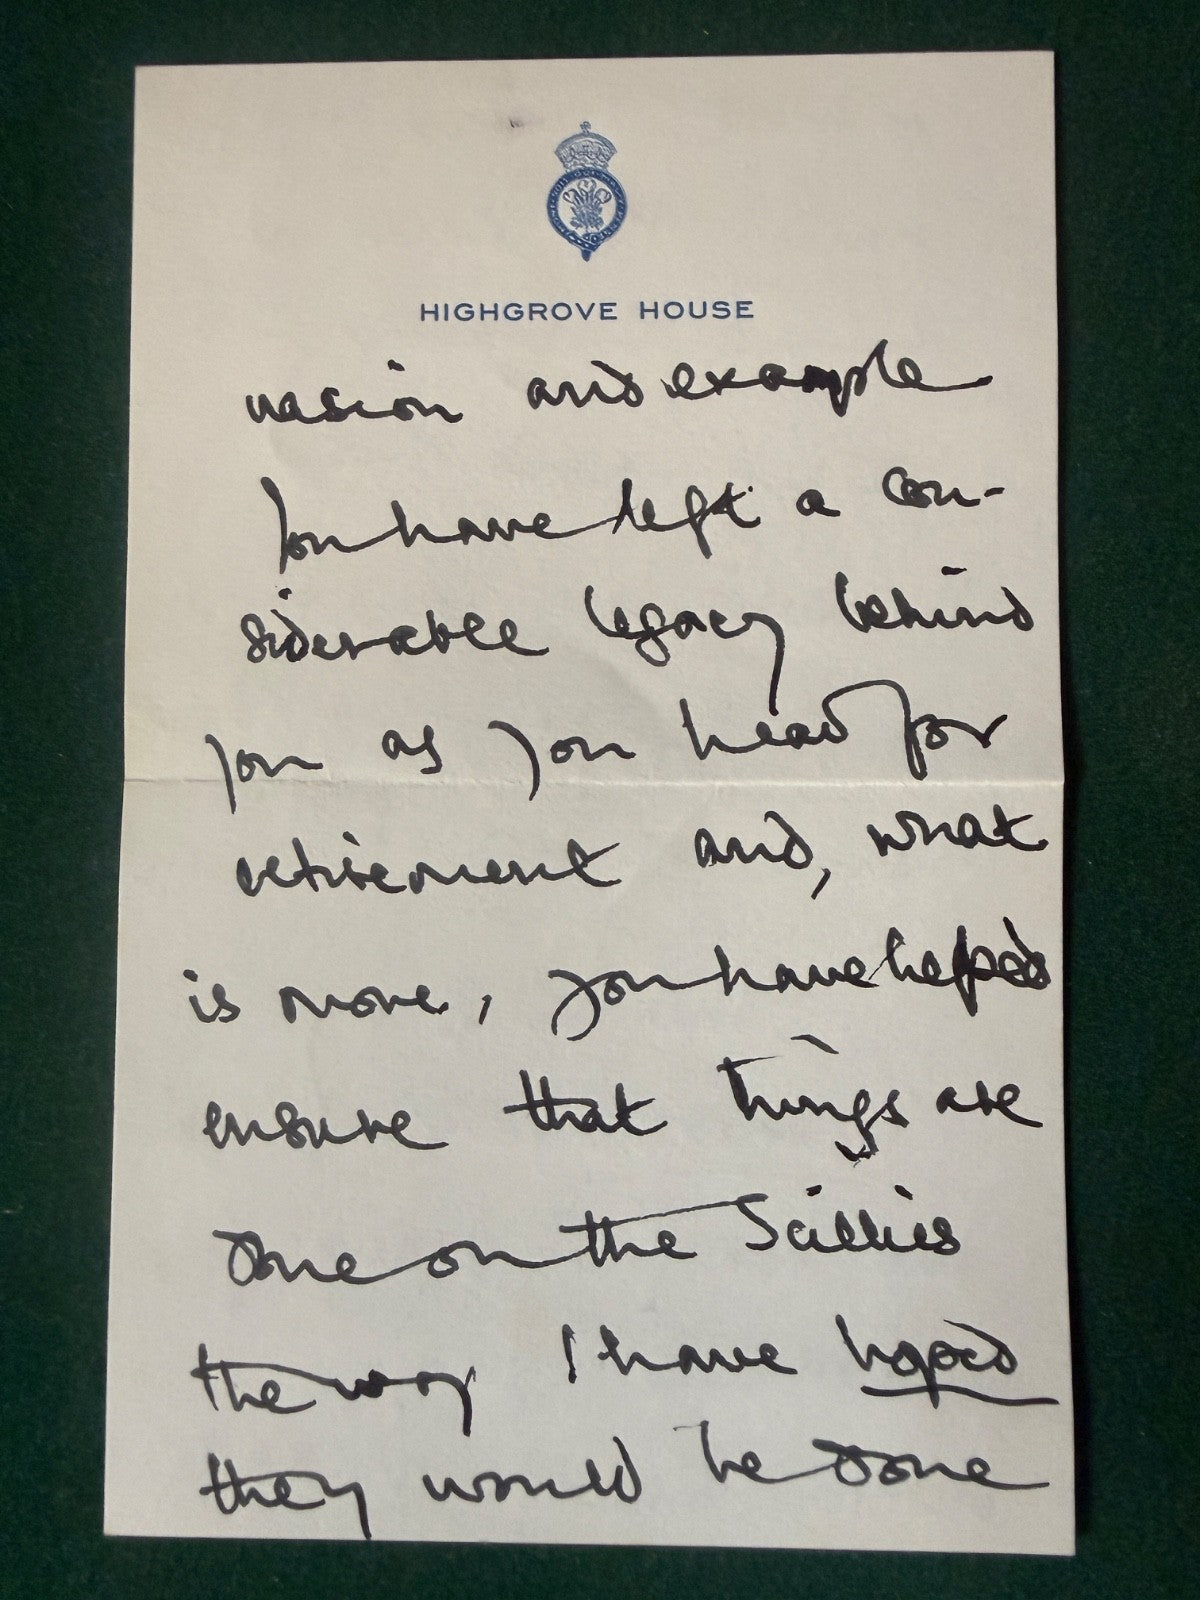 HIGHGROVE HOUSE
uasion and example
You have left a con-
siderable legacy behind
you as you head for
retirement and, what
is more, you have helped
ensure that things are
done on the Scillies
the way I have hoped
they would be done